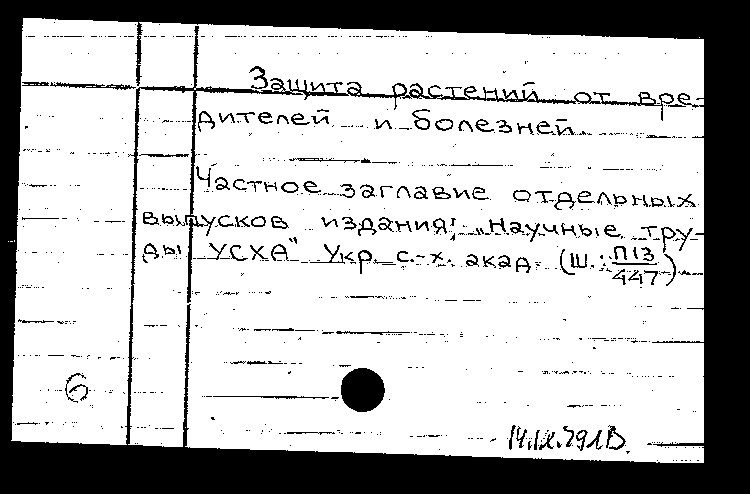 Защита растений от вре-
дителей и болезней.
Частное заглавие отдельных
выпусков издания: „Научные тру-
ды УСХА" Укр. с.-х. акад. (Ш.: П13/447)
6
14.IX.79